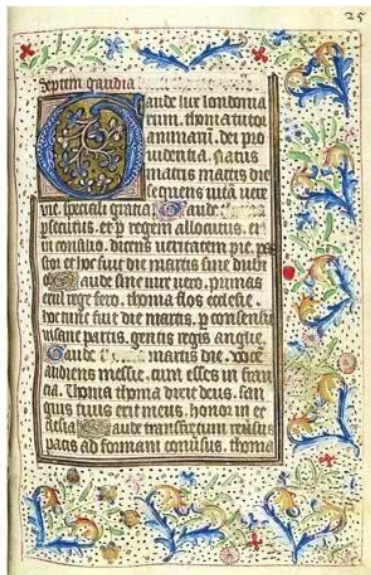 25
Septem gaudia
Gaude lux londonia
rum. thoma tutor
animarum. dei pro
uidentia. Natus
matris martis die
sequens uitam uere
vie. speciali gratia. Gaude
psecutus. et p regem allocutus.
in consilio. dicens ueritatem pie.
et hoc fuit die martis sine dubi
o. Gaude sine iure vero. primas
exul rege fero. thoma flos ecclesie.
hoc tunc fuit die martis. p consensu
insane partis. gentis regis anglie.
Gaude martis die. voce
audiens messie. cum esses in fran
cia. Thoma thoma dixit deus. san
guis tuus erit meus. honor in ec
clesia Gaude transfixum
pacis ad formam conuersus. thoma